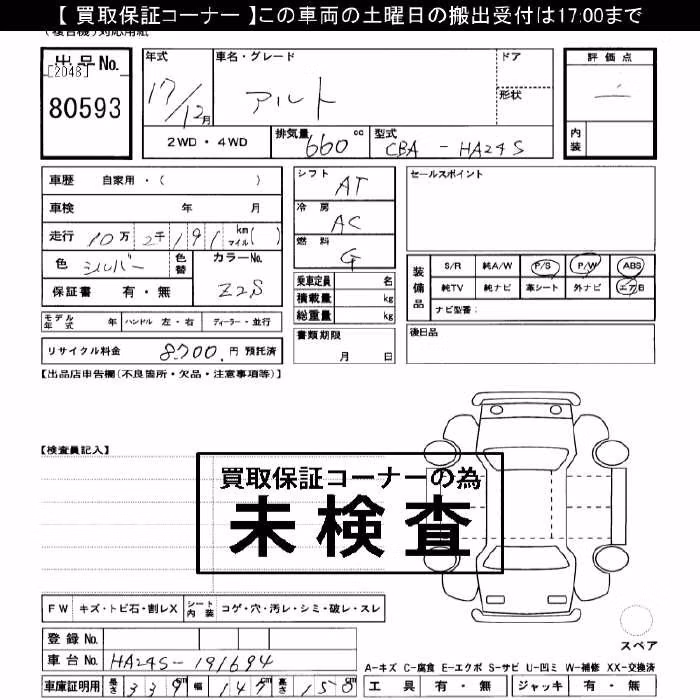 【 買取保証コーナー 】この車両の土曜日の搬出受付は17:00まで
(複合機)対応用紙
出品No.
[2048]
80593
年式
17/12月
車名・グレード
アルト
ドア
形状
評価点
内装
2WD・4WD
排気量 660 cc
型式 CBA - HA24S
車歴 自家用・( )
車検 年 月
走行 10万 2千 191 km マイル( )
色 シルバー 色替 カラーNo. Z2S
保証書 有・無
モデル年式 年 ハンドル 左・右 ディーラー・並行
リサイクル料金 8700. 円 預託済
シフト AT
冷房 AC
燃料 G
乗車定員 名
積載量 kg
総重量 kg
書類期限
月 日
セールスポイント
装備品
S/R 純A/W P/S P/W ABS
純TV 純ナビ 革シート 外ナビ エアB
ナビ型番:
後日品
【出品店申告欄(不良箇所・欠品・注意事項等)】
【検査員記入】
買取保証コーナーの為
未検査
FW キズ・トビ石・割レX シート内装 コゲ・穴・汚レ・シミ・破レ・スレ
登録No.
車台No. HA24S-191694
車庫証明用 長さ 339cm 幅 147cm 高さ 150cm
スペア
A-キズ C-腐食 E-エクボ S-サビ U-凹ミ W-補修 XX-交換済
工具 有・無 ジャッキ 有・無